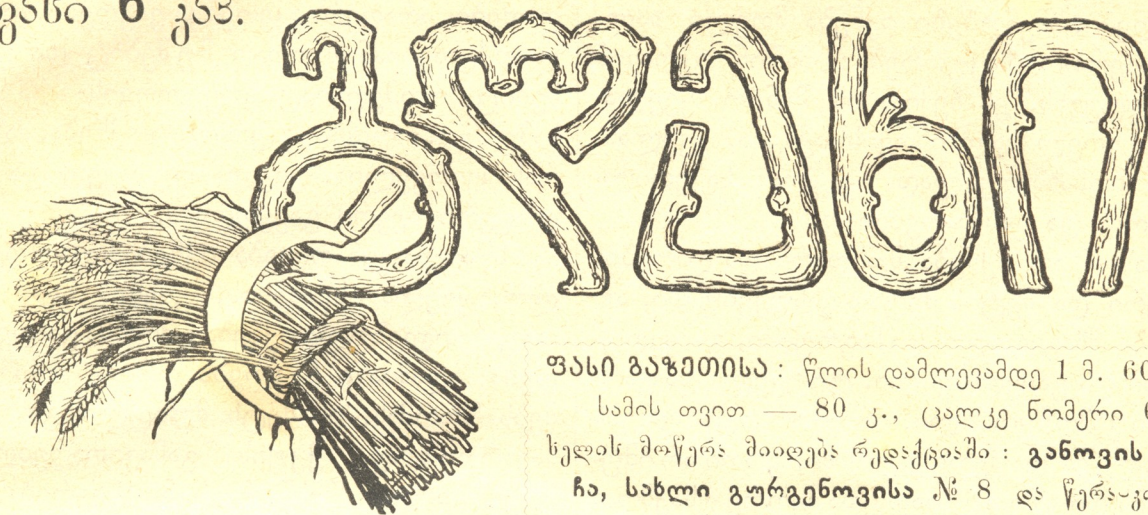 ფასი 6 კაპ.
გლეხი
ფასი გაზეთისა: წლის დამლევამდე 1 მ. 60
სამის თვით — 80 კ., ცალკე ნომერი
ხელის მოწერა მიიღება რედაქციაში: განოვის
ჩა, სახლი გურგენოვისა № 8 და წერა-კ